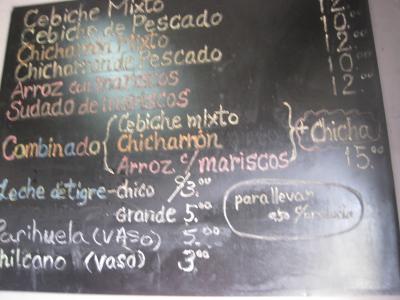 Cebiche Mixto 12.
Cebiche de Pescado 10.00
Chicharron Mixto 12.00
Chicharron de Pescado 10.00
Arroz con mariscos 12.00
Sudado de mariscos
Combinado Cebiche mixto
Chicharrón
Arroz c/mariscos + Chicha 15.00
Leche de tigre - chico S/3.00
Grande 5.00
para llevar
Parihuela (VASO) 5.00
Chilcano (Vaso) 3.00